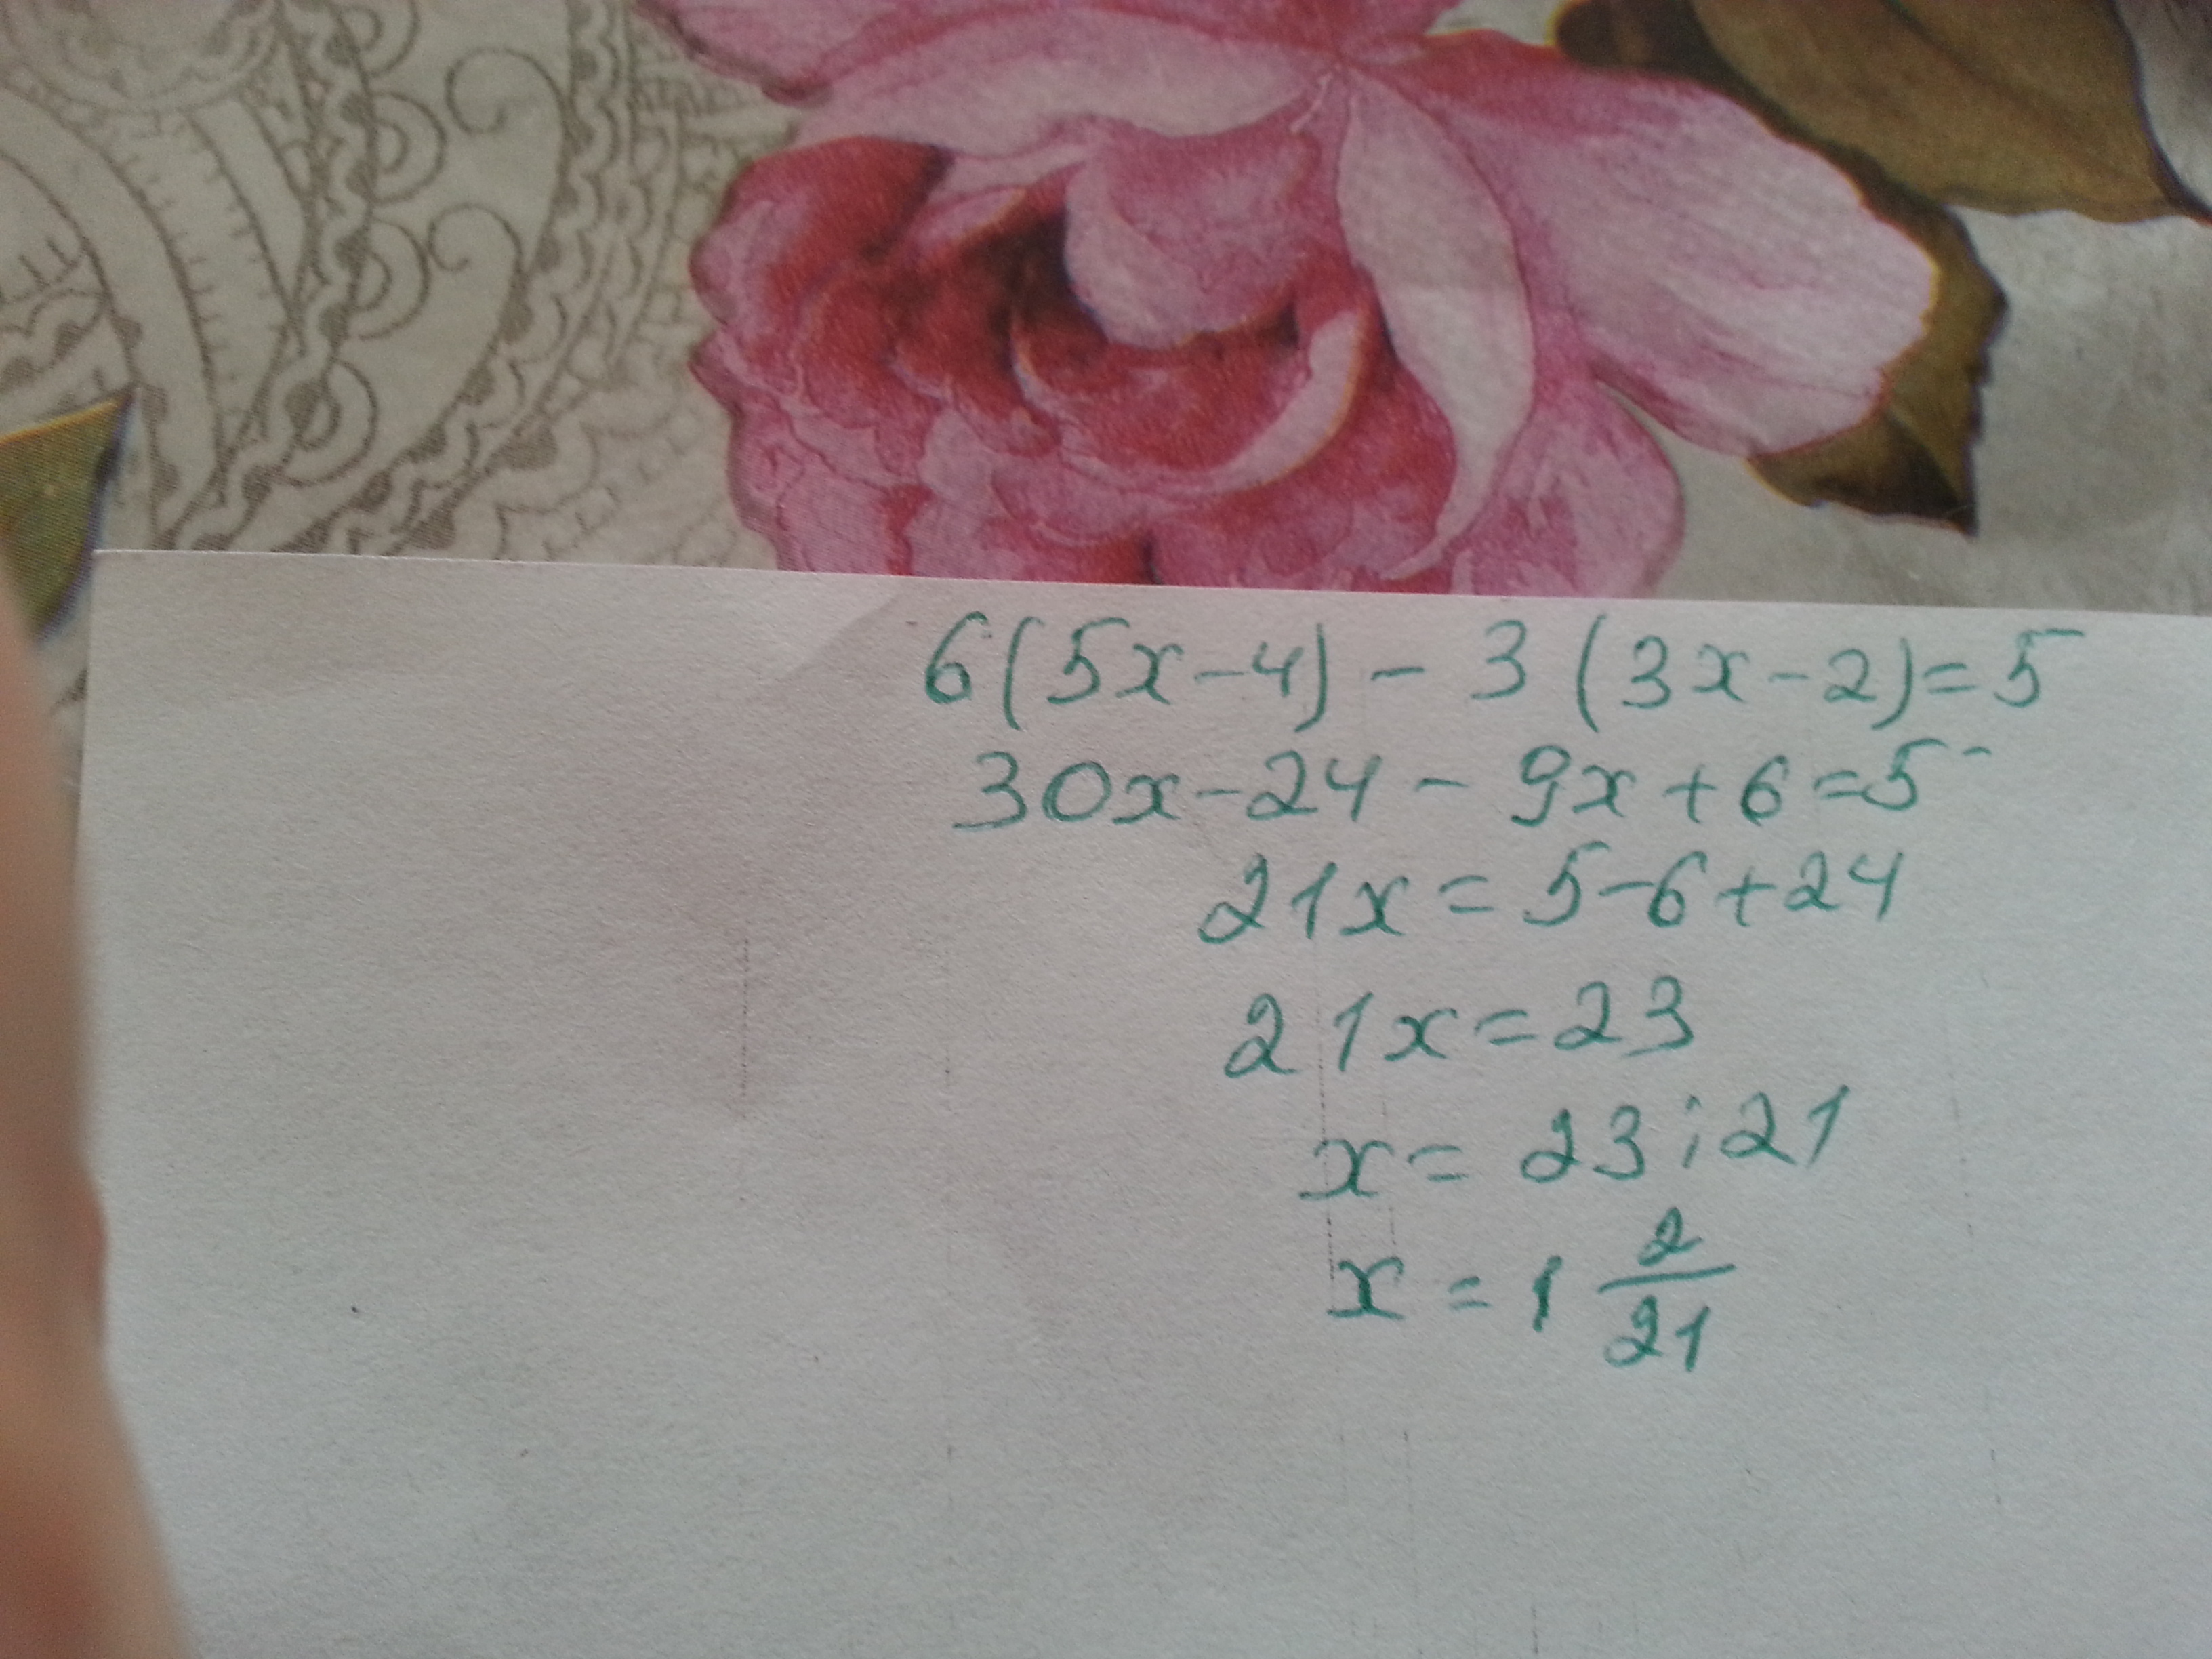 6(5x-4) - 3(3x-2)=5
30x-24 - 9x+6=5
21x = 5-6+24
21x=23
x= 23:21
x = 1 2/21